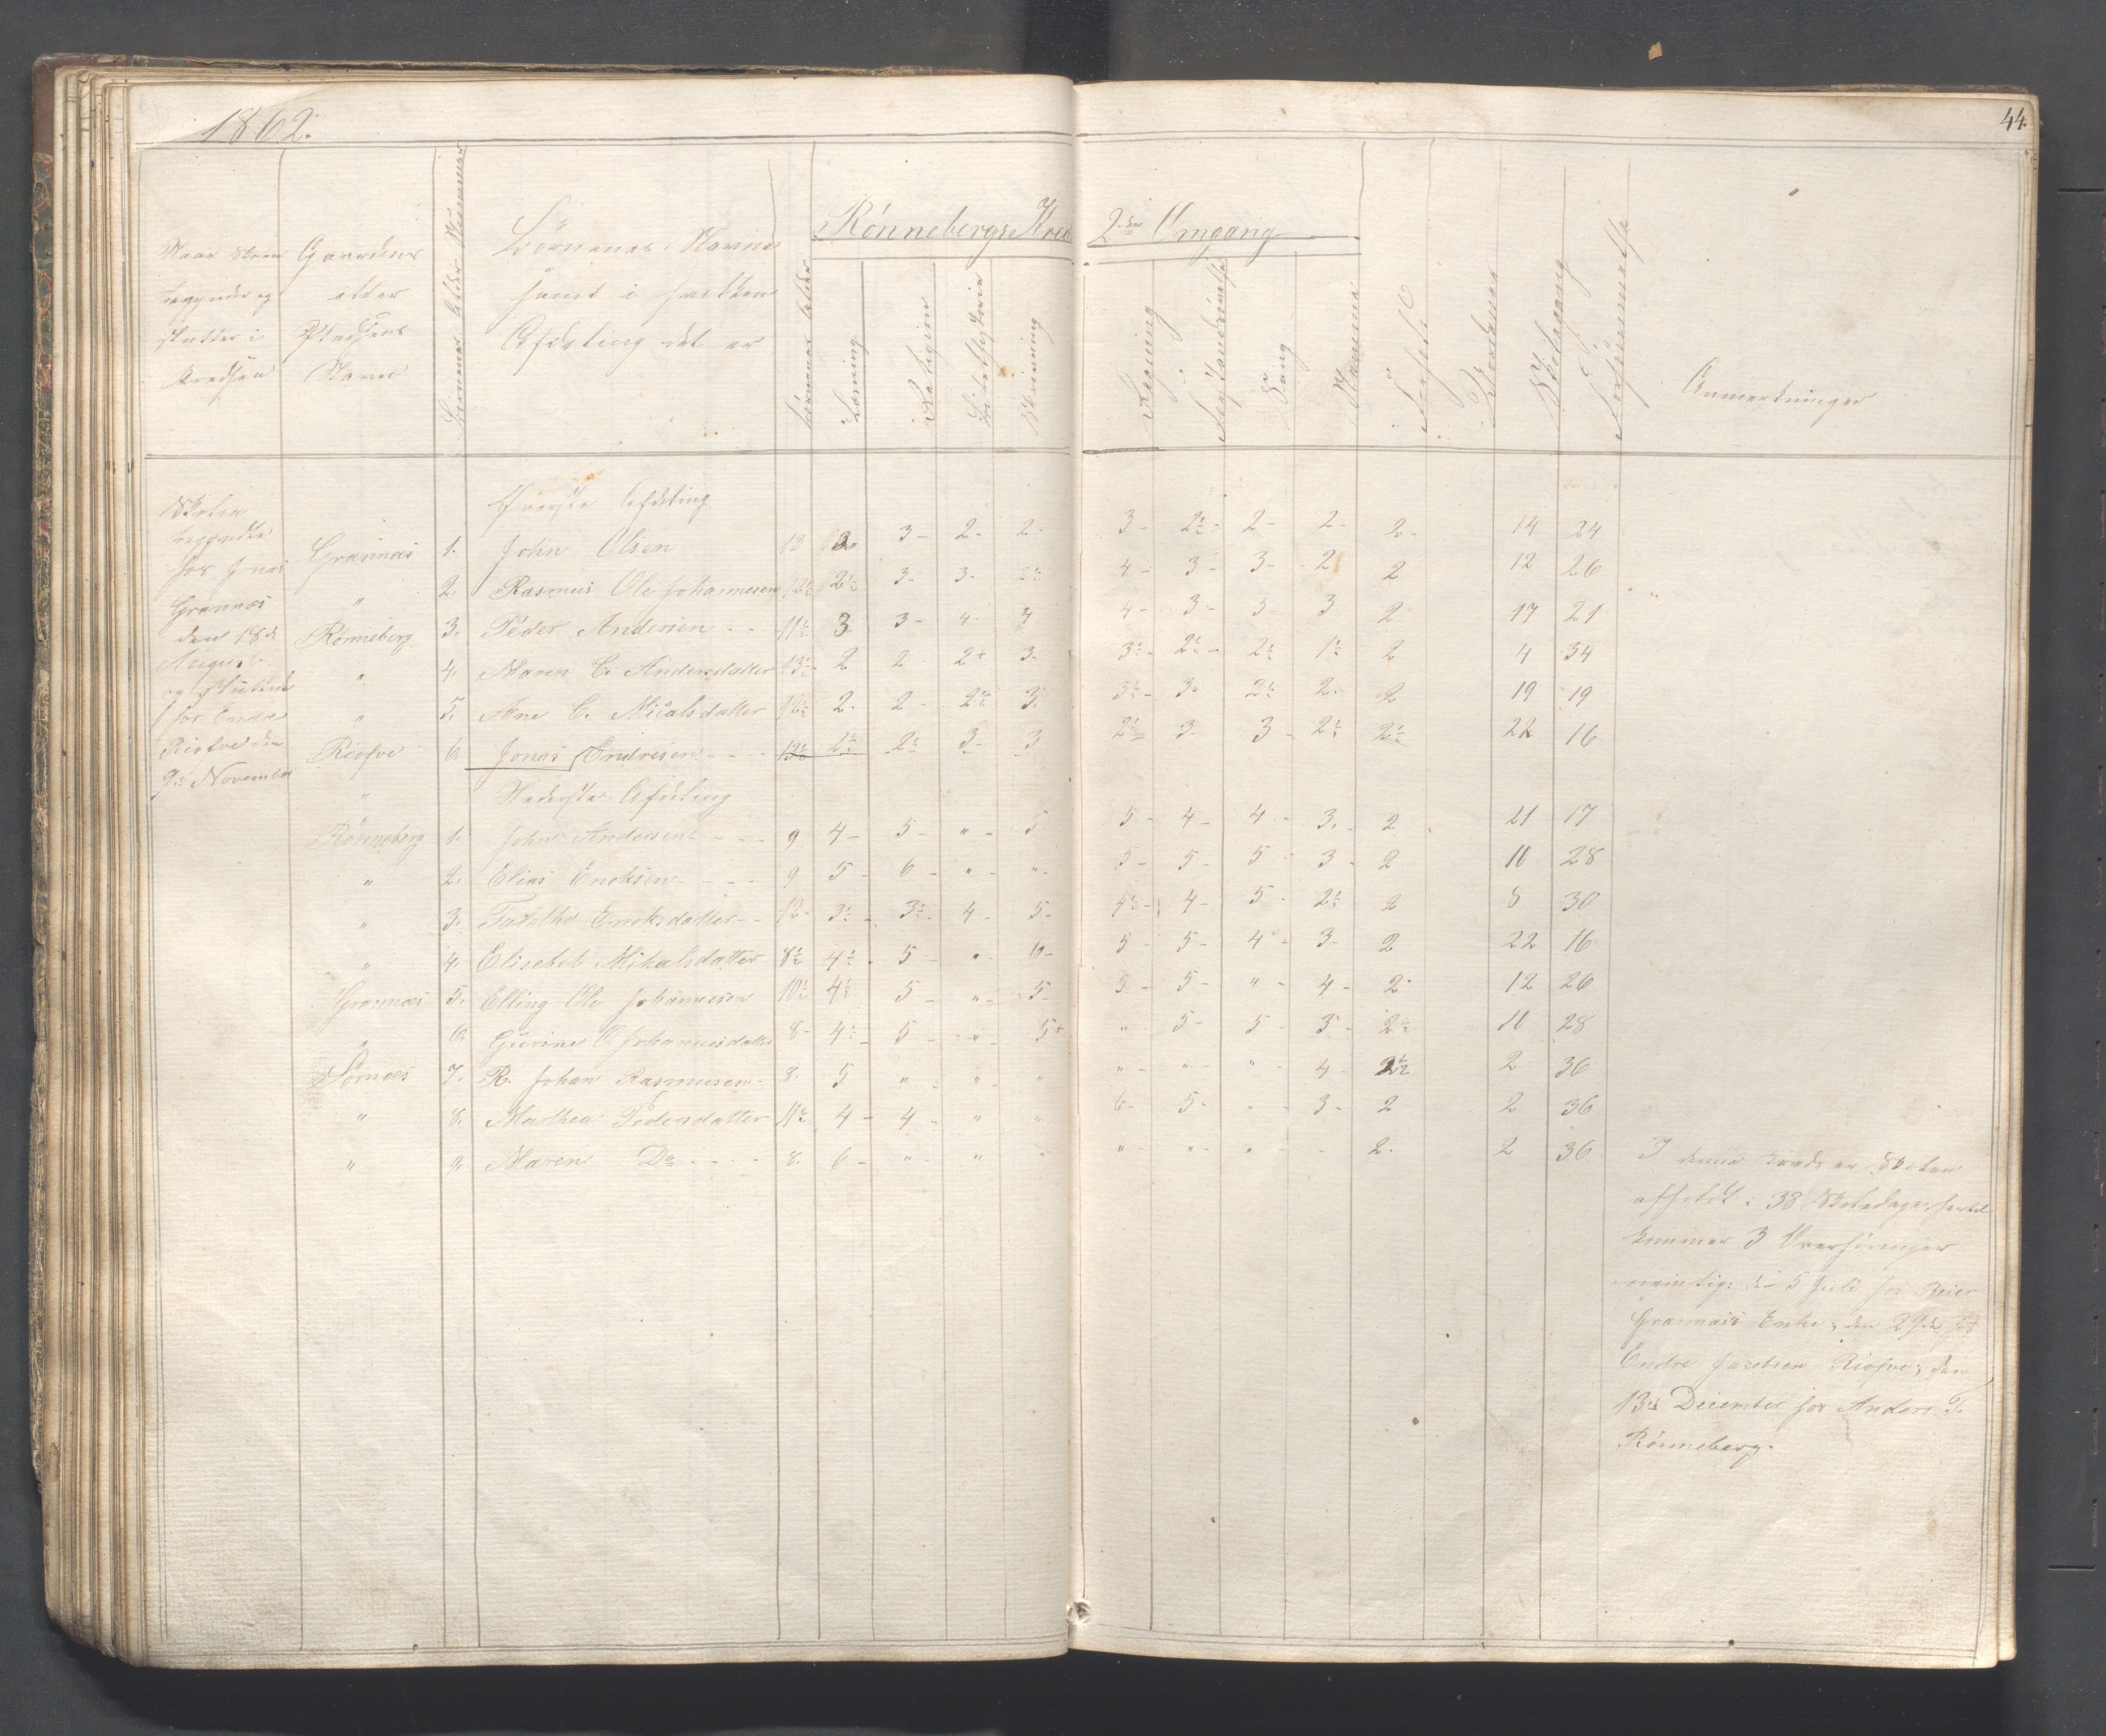 1862.
44.
Rønnebergs Kred 2den Omgang
Naar Skolen begynder og slutter i Kredsen
Gaardens eller Pladsens Navn
Børnenes Navne samt i hvilken Afdeling det er
Børnenes Alder
Læsning
Religion
Bibelhistorie
Skrivning
Regning
Sang
Evne
Forhold
Skolegang
Forsømmelse
Anmerkninger
Skolen begyndte hos Jonas Grannæs den 18de August og sluttede hos Endre Riofve den 9de November
Øverste Afdeling
Grannæs 1. John Olsen 13 2 3- 2- 2- 3- 2½- 2- 2- 2- 14 24
" 2. Rasmus Ole Johannesen 12½ 2½ 3- 3- 2½ 4- 3- 3- 2 2 12 26
Rønneberg 3. Peder Andersen 11½ 3 3- 4- 4 4- 3- 3- 3 2 17 21
" 4. Maren C. Andersdatter 13½ 2 2 2+ 3- 3½- 2½- 2½ 1½ 2 4 34
" 5. Ane C. Micalsdatter 12½ 2- 2- 2½ 3. 3½- 3- 2½ 2- 2 19 19
Riofve 6. Jonas Endresen 13½ 2½ 2½ 3- 3 2½ 3- 3- 2½ 2½ 22 16
" Nederste Afdeling
Rønneberg 1. John Andersen 9 4- 5- "- 5 5- 4- 4- 3- 2 21 17
" 2. Elias Enoksen 9 5- 6- "- "- 5- 5- 5- 3- 2 10 28
" 3. Tabitha Enoksdatter 12- 3½- 3½- 4- 5- 4½- 4- 5- 2½ 2 8 30
" 4. Elisebet Mikalsdatter 8½ 4½- 5- " 6- 5- 5- 4- 3- 2 22 16
Grannæs 5. Elling Ole Johannesen 10½ 4½ 5- "- 5- 5- 5- "- 4- 2- 12 26
" 6. Gurine O. Johannesdatter 8- 4½- 5- "- 5+ " 5- 5- 3- 2½ 10 28
Sørnæs 7. R. Johan Rasmusen 8. 5 "- "- " "- "- "- 4- 2½ 2 36
" 8. Marthea Pedersdatter 11½ 4- 4- " " 6- 5- "- 3- 2 2 36
" 9. Maren Do 8. 6- "- " " "- "- "- - 2. 2 36
I denne Kreds er Skolen
afholdt i 38 Skoledage, hertil
kommer 3 Overhøringer
nemlig: den 5 Juli hos Reier
Grannæs Enke; den 29de hos
Endre Jacobsen Riofve; den
13de December hos Anders T.
Rønneberg.